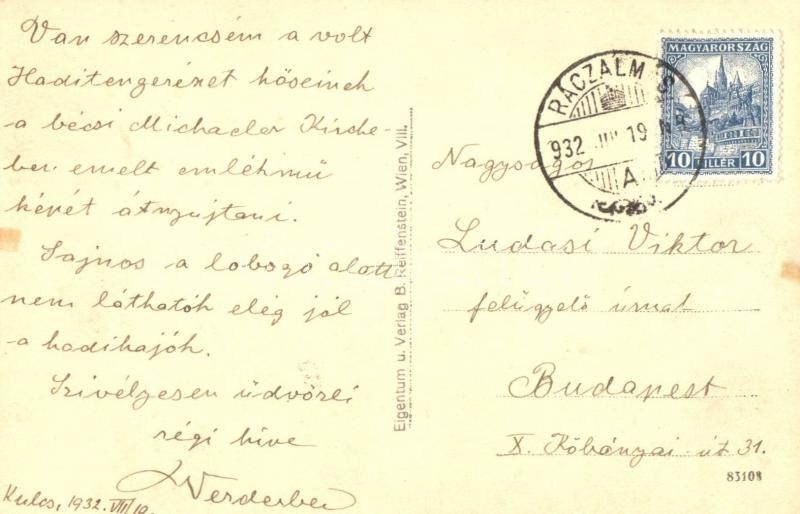 Van szerencsém a volt
Haditengerészet hőseinek
a bécsi Michaeler Kirche-
ben emelt emlékmű
képét átnyujtani.
Sajnos a lobogó alatt
nem láthatók elég jól
a hadihajók.
Szivélyesen üdvözli
régi híve
Werderber
Kulcs, 1932. VIII/19.
Eigentum u. Verlag B. Reiffenstein, Wien, VIII.
MAGYARORSZÁG
10 FILLÉR 10
RÁCZALMÁS
932 19
A
Nagyságos
Ludasi Viktor
felügyelő úrnak
Budapest
X. Kőbányai-út 31.
83108